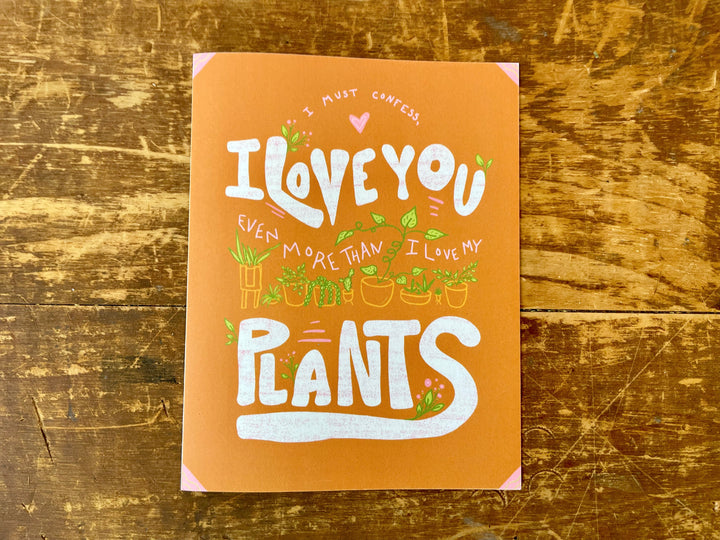 I MUST CONFESS,
I LOVE YOU
EVEN MORE THAN I LOVE MY
PLANTS